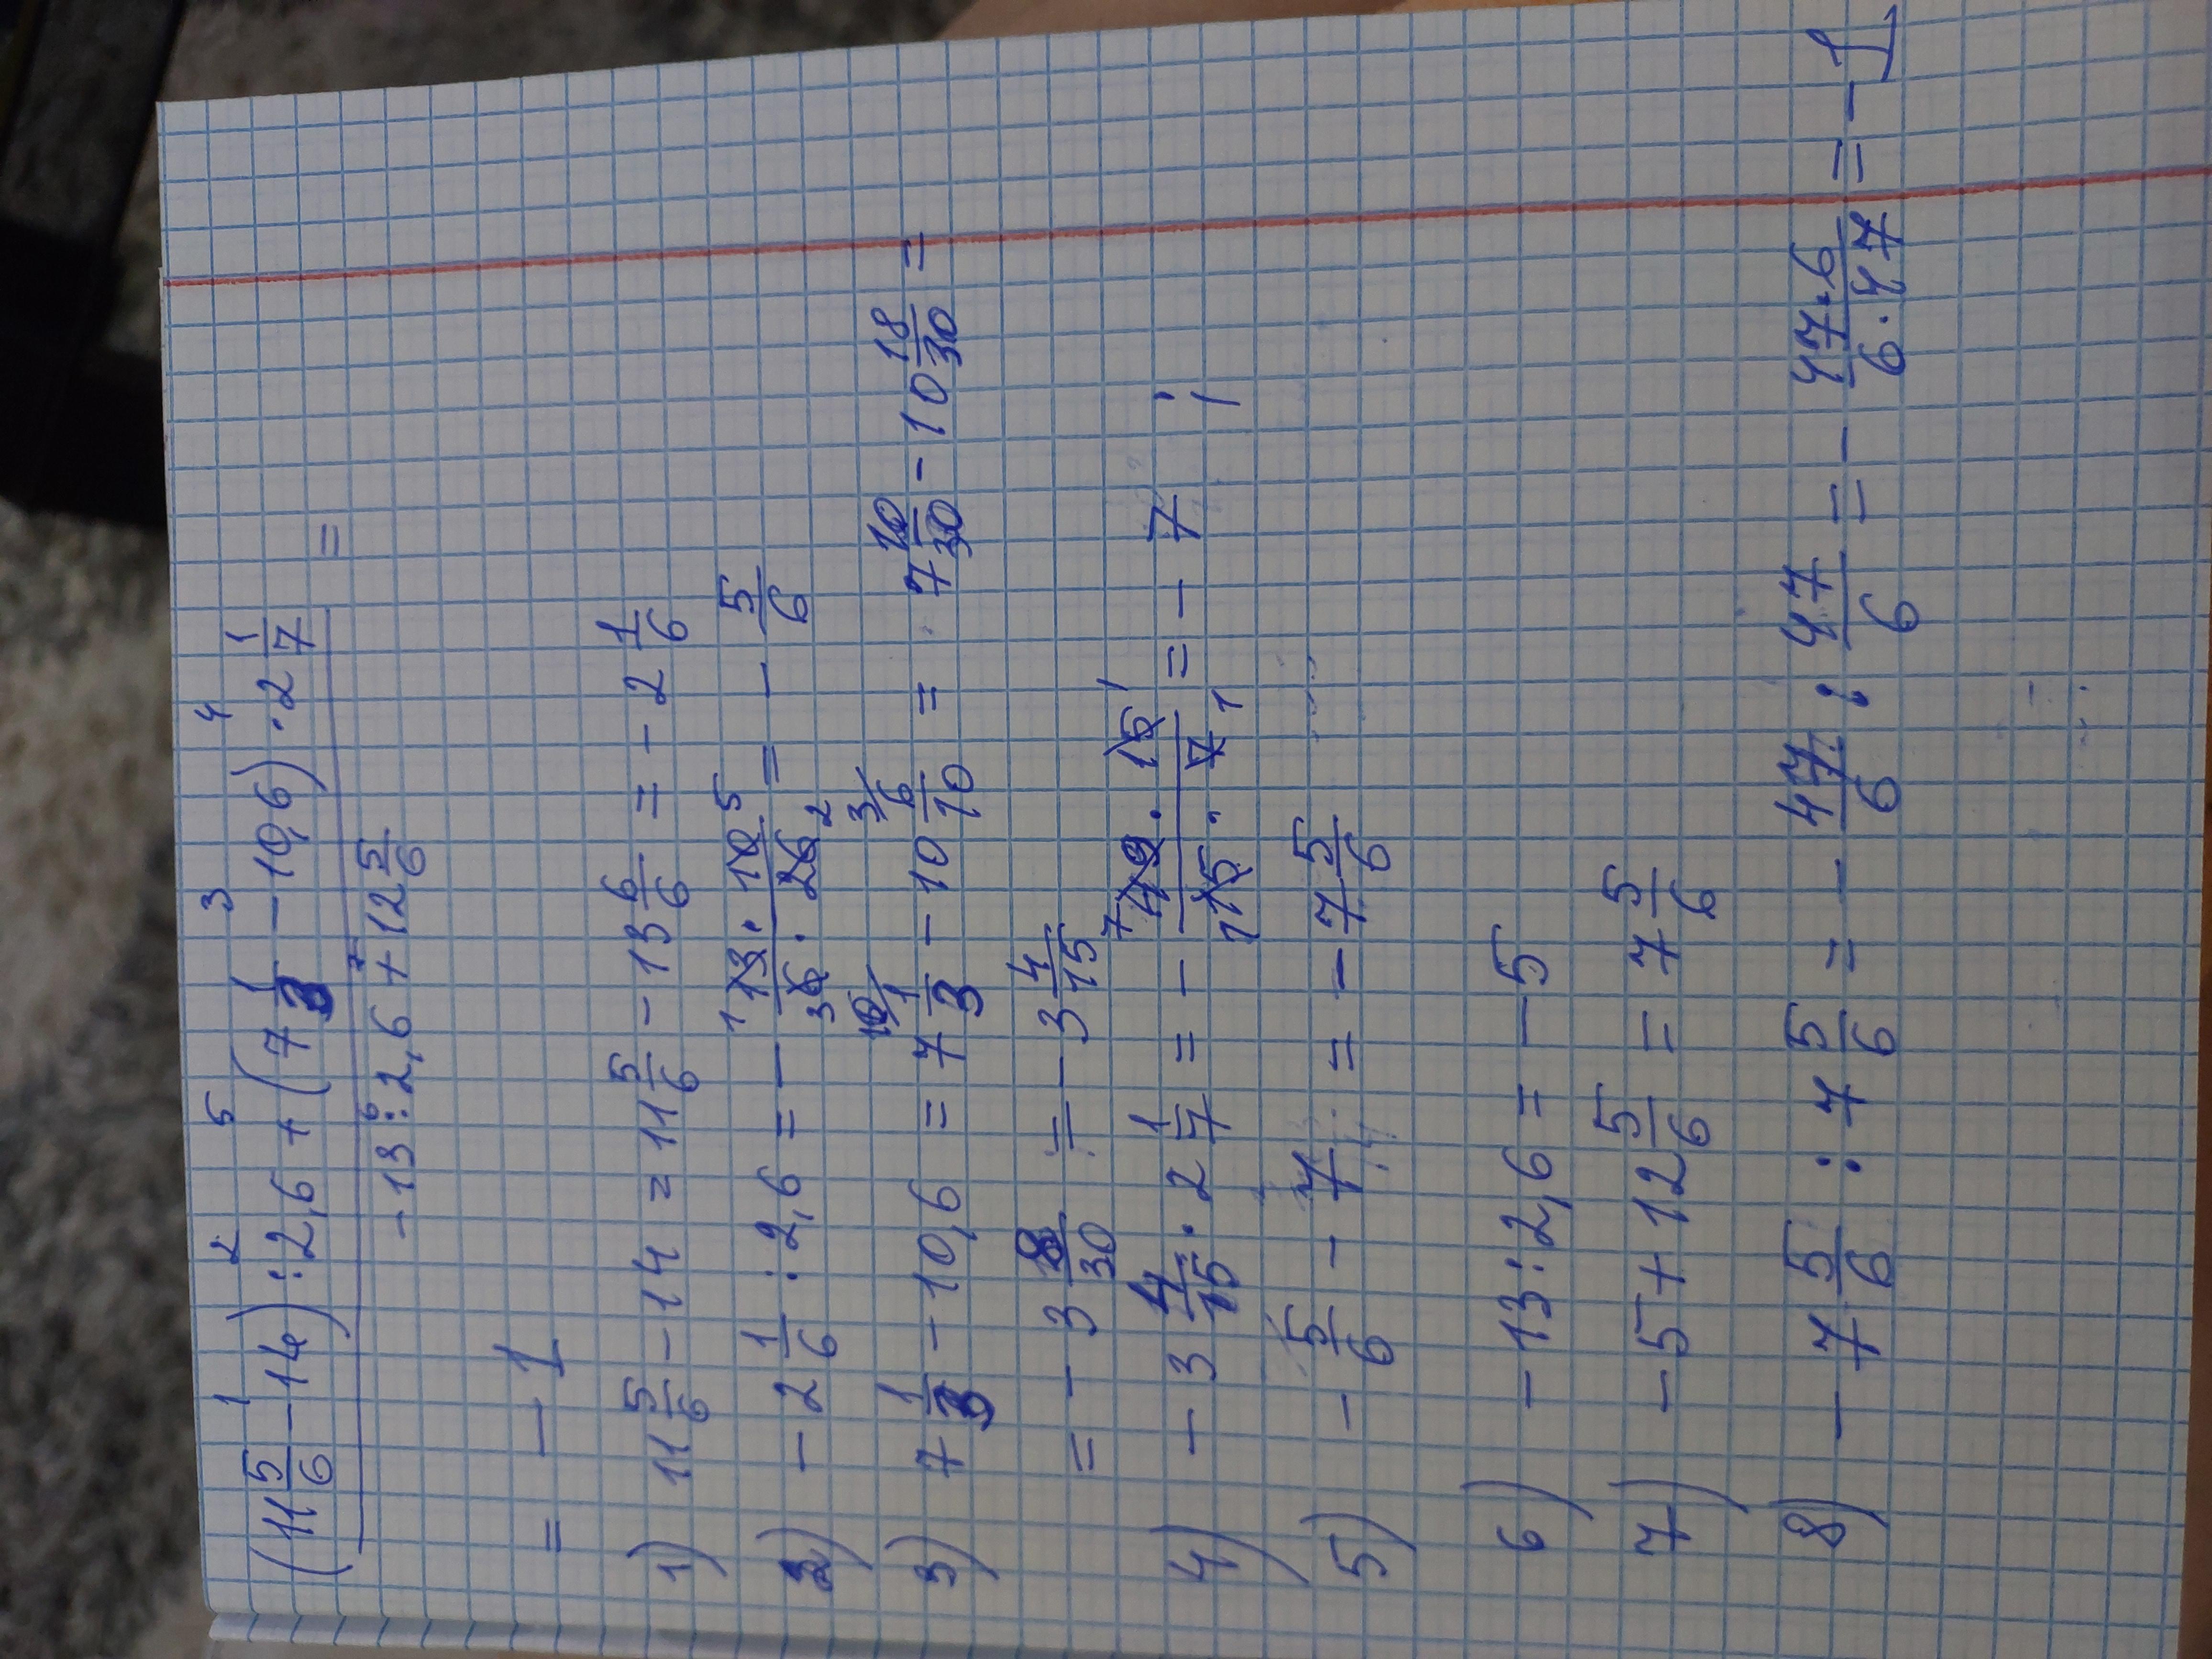 (11 5/6 - 14) : 2,6 + (7 1/3 - 10,6) · 2 1/7 =
-13 : 2,6 + 12 5/6
= - 1
1) 11 5/6 - 14 = 11 5/6 - 13 6/6 = - 2 1/6
2) - 2 1/6 : 2,6 = - 13 · 10/6 · 26 = - 5/6
3) 7 1/3 - 10,6 = 7 1/3 - 10 6/10 = 7 10/30 - 10 18/30 =
= - 3 8/30 = - 3 4/15
4) - 3 4/15 · 2 1/7 = - 49 · 15/15 · 7 = - 7 ;
5) - 5/6 - 7 = - 7 5/6
6) - 13 : 2,6 = - 5
7) - 5 + 12 5/6 = 7 5/6
8) - 7 5/6 : 7 5/6 = - 47/6 : 47/6 = - 47 · 6/6 · 47 = - 1